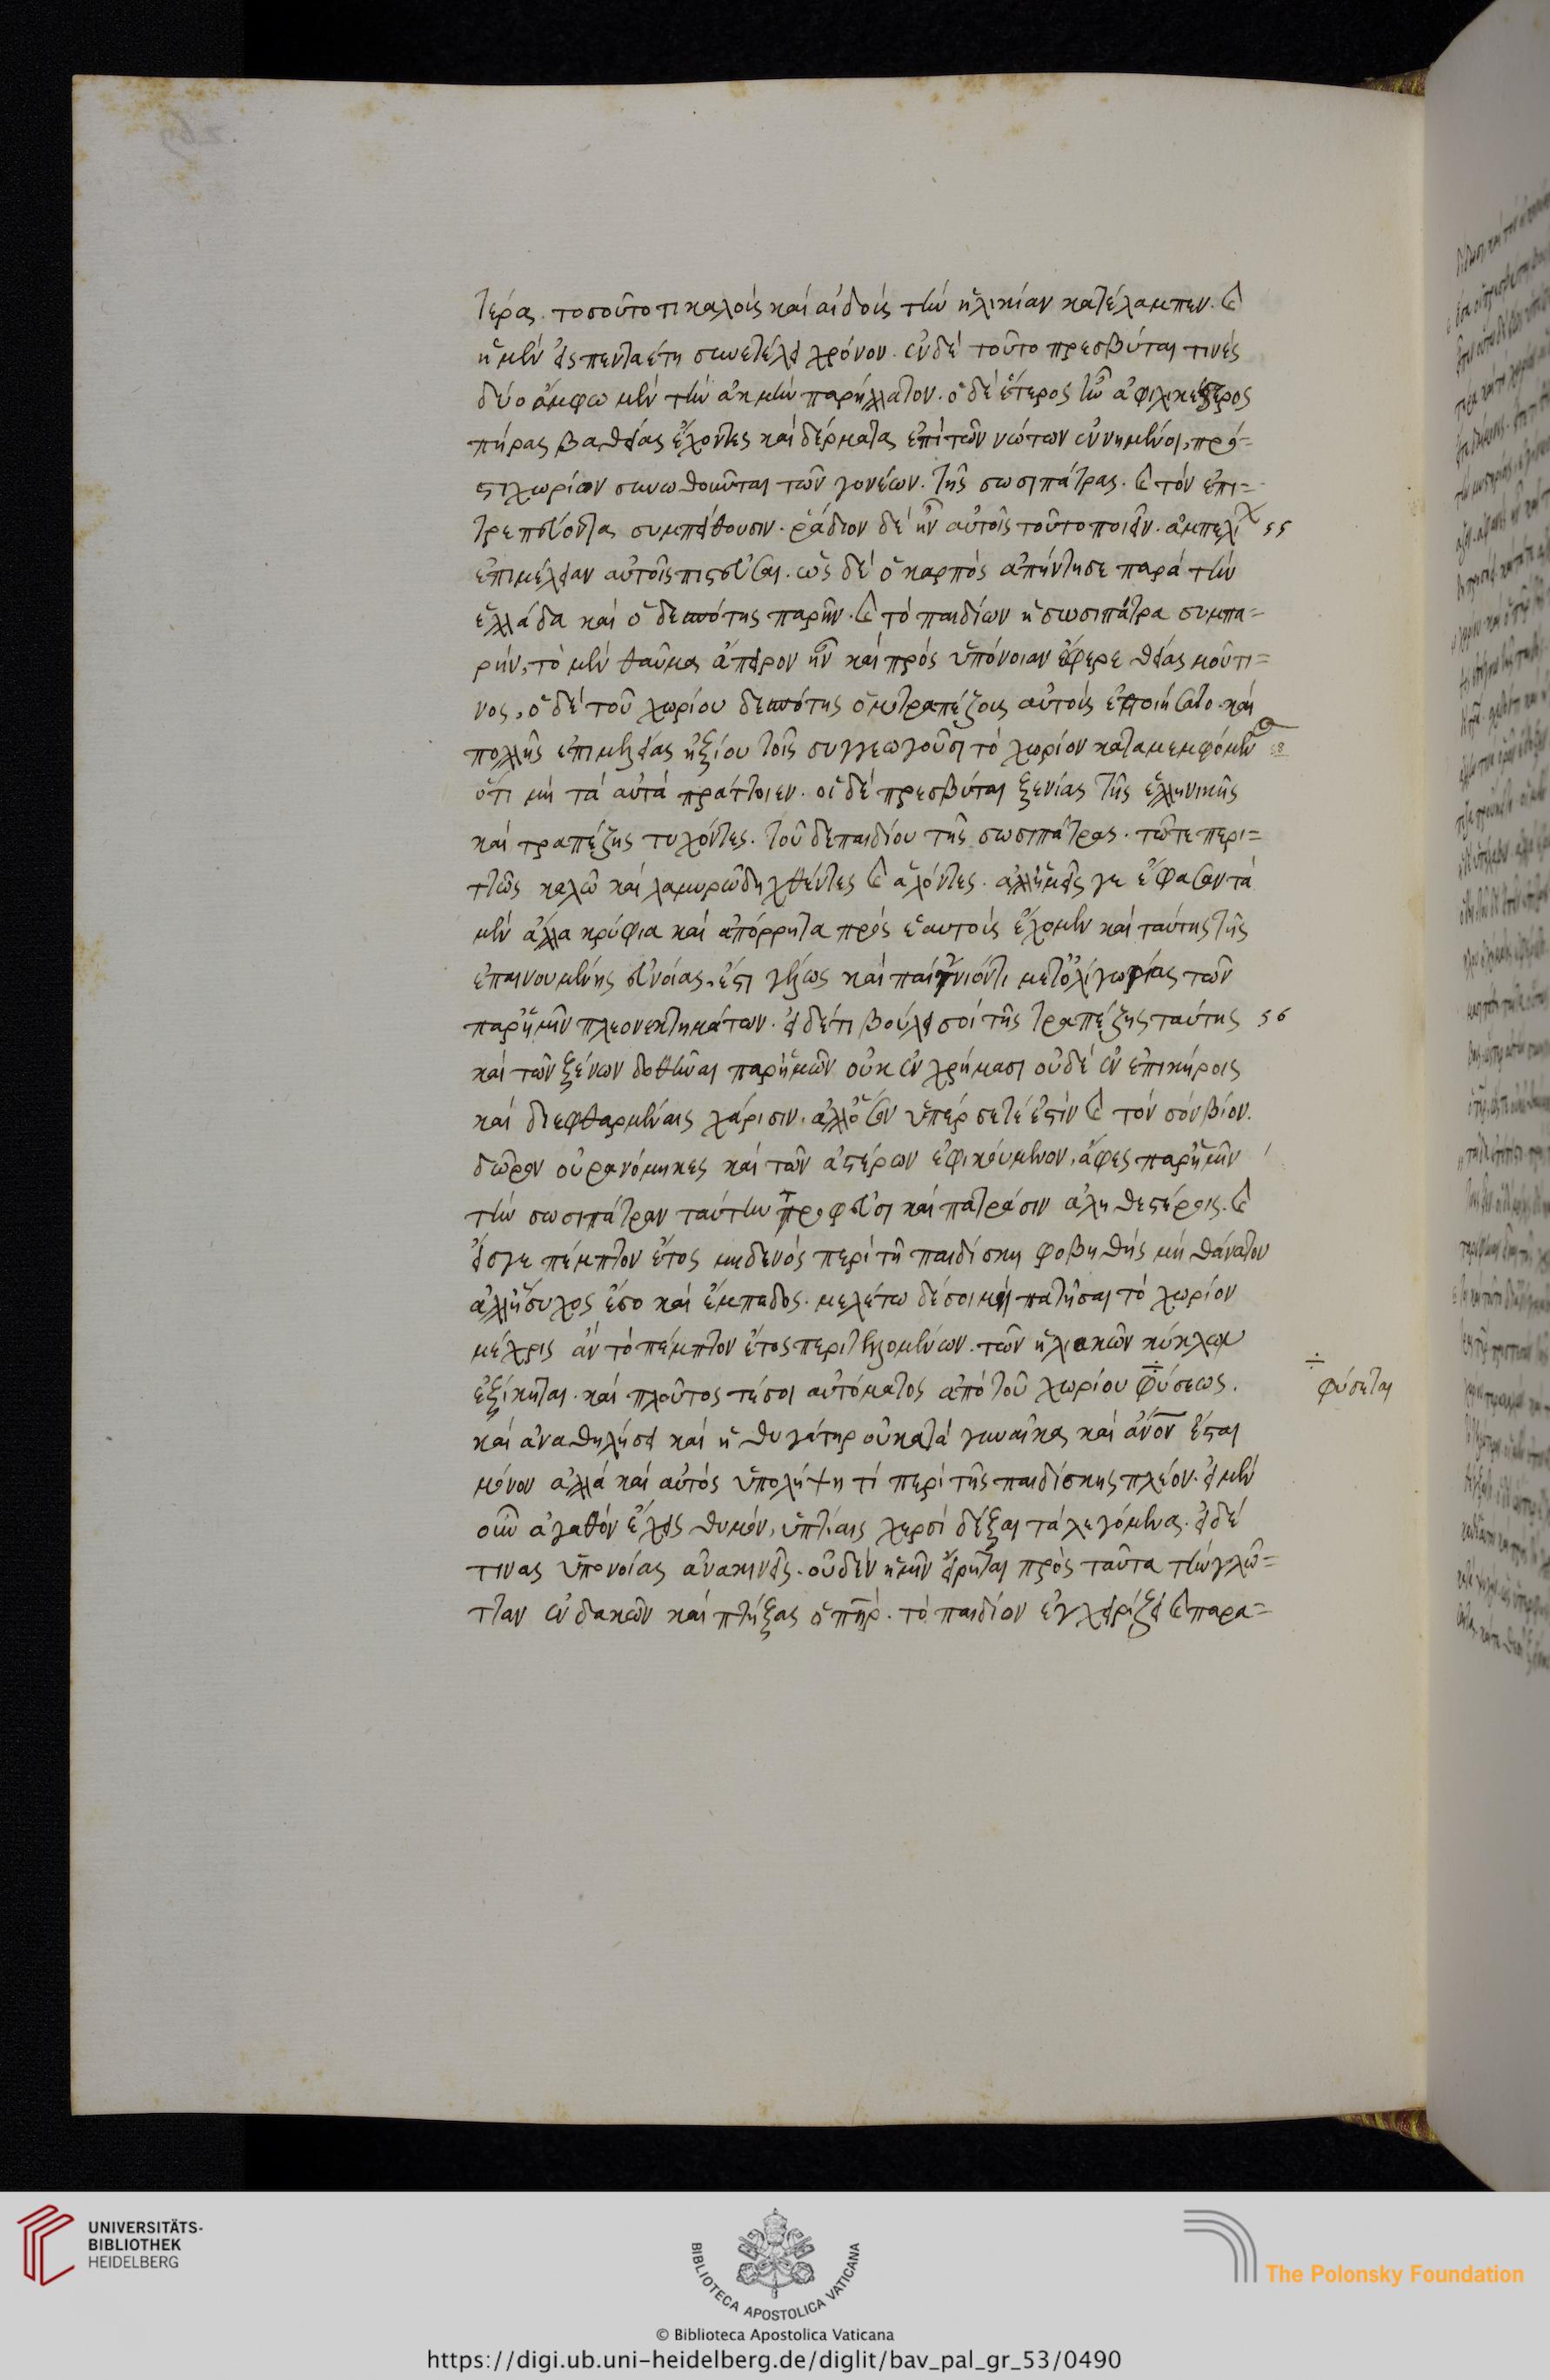 τέρας. τοσοῦτο τι κάλους καὶ αἰδοῦς τὴν ἡλικίαν κατέλαμπεν. καὶ
ἡ μὲν εἰς πενταέτη συνετέλει χρόνον. ἐν δὲ τοῦτο πρεσβύται τινές
δύο ἄμφω μὲν τὴν ἀκμὴν παρήλλατον. ὁ δὲ ἕτερος
πήρας βαθείας ἔχοντες καὶ δέρματα ἐπὶ τῶν νώτων ἐννημένοι, πρό=
τι χωρίον συνωθοῦνται τῶν γονέων. τῆς σωσιπάτρας. καὶ τὸν ἐπι=
τρεπεύοντα συμπείθουσιν. ῥάδιον δὲ ἦν αὐτοῖς τοῦτο ποιεῖν. ἀμπελι χ 55
ἐπιμέλειαν αὐτοῖς πιστεῦσαι. ὡς δὲ ὁ καρπὸς ἀπήντησε παρὰ τὴν
ἑλλάδα καὶ ὁ δεσπότης παρῆν. καὶ τὸ παιδίων ἡ σωσιπάτρα συμπα=
ρήν, τὸ μὲν θαῦμα ἄπειρον ἦν καὶ πρὸς ὑπόνοιαν ἔφερε θείας μοῦτι=
νος, ὁ δὲ τοῦ χωρίου δεσπότης ὁμοτραπέζους αὐτοὺς ἐποιήσατο. καὶ
πολλῆς ἐπιμελείας ἠξίου τοῖς συγγεωγοῦσι τὸ χωρίον καταμεμφόμεν
ὅτι μὴ τὰ αὐτὰ πράττοιεν. οἱ δὲ πρεσβύται ξενίας τῆς ἑλληνικῆς
καὶ τραπέζης τυχόντες. τοῦ δε παιδίου τῆς σωσιπάτρας. τῶτε περι=
τῶς καλῶ καὶ λαμυρῶ δηχθέντες καὶ ἁλόντες. ἀλλἡμεῖς γε ἔφασαν τὰ
μὲν ἄλλα κρύφια καὶ ἀπόρρητα πρὸς ἑαυτοὺς ἔχομεν καὶ ταύτης τῆς
ἐπαινουμένης εὐνοίας. ἐστι γέλως καὶ παίγνιόν τι μετ ὀλιγωρίας τῶν
παρ ἡμῖν πλεονεκτημάτων. εἰ δέ τι βούλει σοὶ τῆς τραπέζης ταύτης 56
καὶ τῶν ξένων δοθῆναι παρ ἡμῶν οὐκ ἐν χρήμασι οὐδὲ ἐν ἐπικήροις
καὶ διεφθαρμέναις χάρισιν. ἀλλ ὅσον ὑπέρ σε τέ ἐστίν καὶ τὸν σὸν βίον.
δῶρον οὐρανόμηκες καὶ τῶν ἀστέρων ἐφικούμενον. ἄφες παρ ἡμῖν
τὴν σωσιπάτραν ταύτην τροφεῦσι καὶ πατράσιν ἀληθεστέροις. καὶ
εἴς γε πέμπτον ἔτος μηδενὸς περὶ τῆ παιδίσκη φοβηθῆς μὴ θάνατον
ἀλλ ἥσυχος ἔσο καὶ ἔμπεδος. μελέτω δέ σοι μὴ πατῆσαι τὸ χωρίον
μέχρις ἂν τὸ πέμπτον ἔτος περιτελλομένων. τῶν ἡλιακῶν κύκλων
ἐξίκηται. καὶ πλοῦτος τέσοι αὐτόματος ἀπὸ τοῦ χωρίου φύσεως. ÷ φύσεται
καὶ ἀναθηλήσει καὶ ἡ θυγάτηρ οὐ κατὰ γυναῖκας καὶ ἄνον ἔσται
μόνον ἀλλὰ καὶ αὐτὸς ὑπολήψη τὶ περὶ τῆς παιδίσκης πλέον. εἰ μὲν
οὖν ἀγαθὸν ἔχεις θυμὸν, ὑπτίαις χερσὶ δέξαι τὰ λεγόμενας. εἰ δέ
τινας ὑπονοίας ἀνακινεῖς. οὐδὲν ἡμῖν εἴρηται πρὸς ταῦτα τὴν γλῶ=
τταν ἐνδακῶν καὶ πτήξας ὁ πηρ. τὸ παιδίον ἐγχειρίζει καὶ παρα=
UNIVERSITÄTS-
BIBLIOTHEK
HEIDELBERG
BIBLIOTECA APOSTOLICA VATICANA
The Polonsky Foundation
© Biblioteca Apostolica Vaticana
https://digi.ub.uni-heidelberg.de/diglit/bav_pal_gr_53/0490